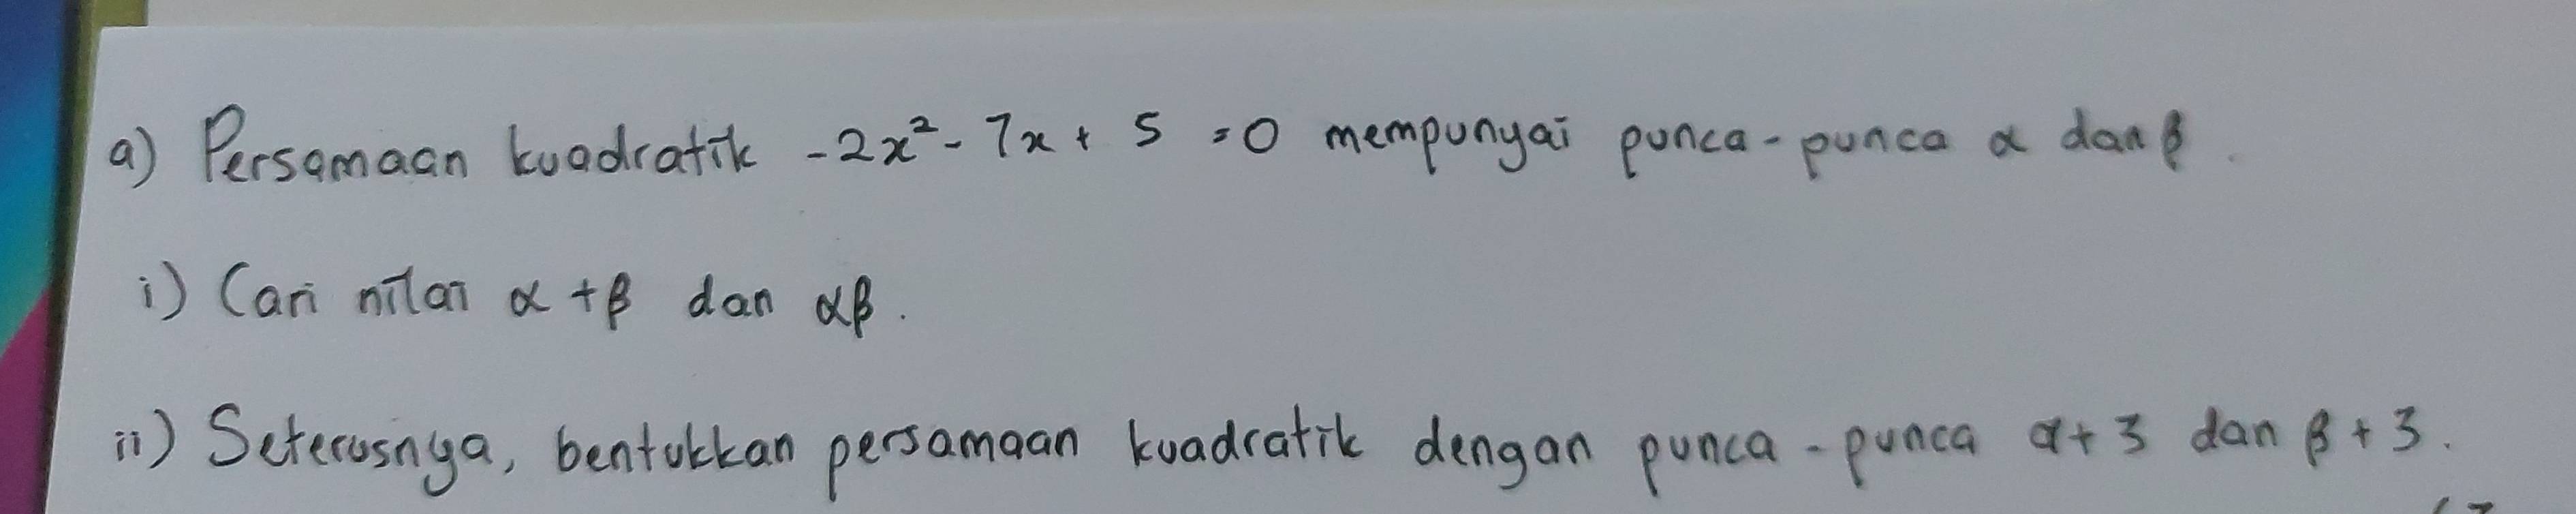 a) Persamaan kuadratik -2x² - 7x + 5 = 0 mempunyai punca-punca α dan β.
i) Cari nilai α + β dan αβ.
ii) Seterusnya, bentukkan persamaan kuadratik dengan punca-punca α + 3 dan β + 3.